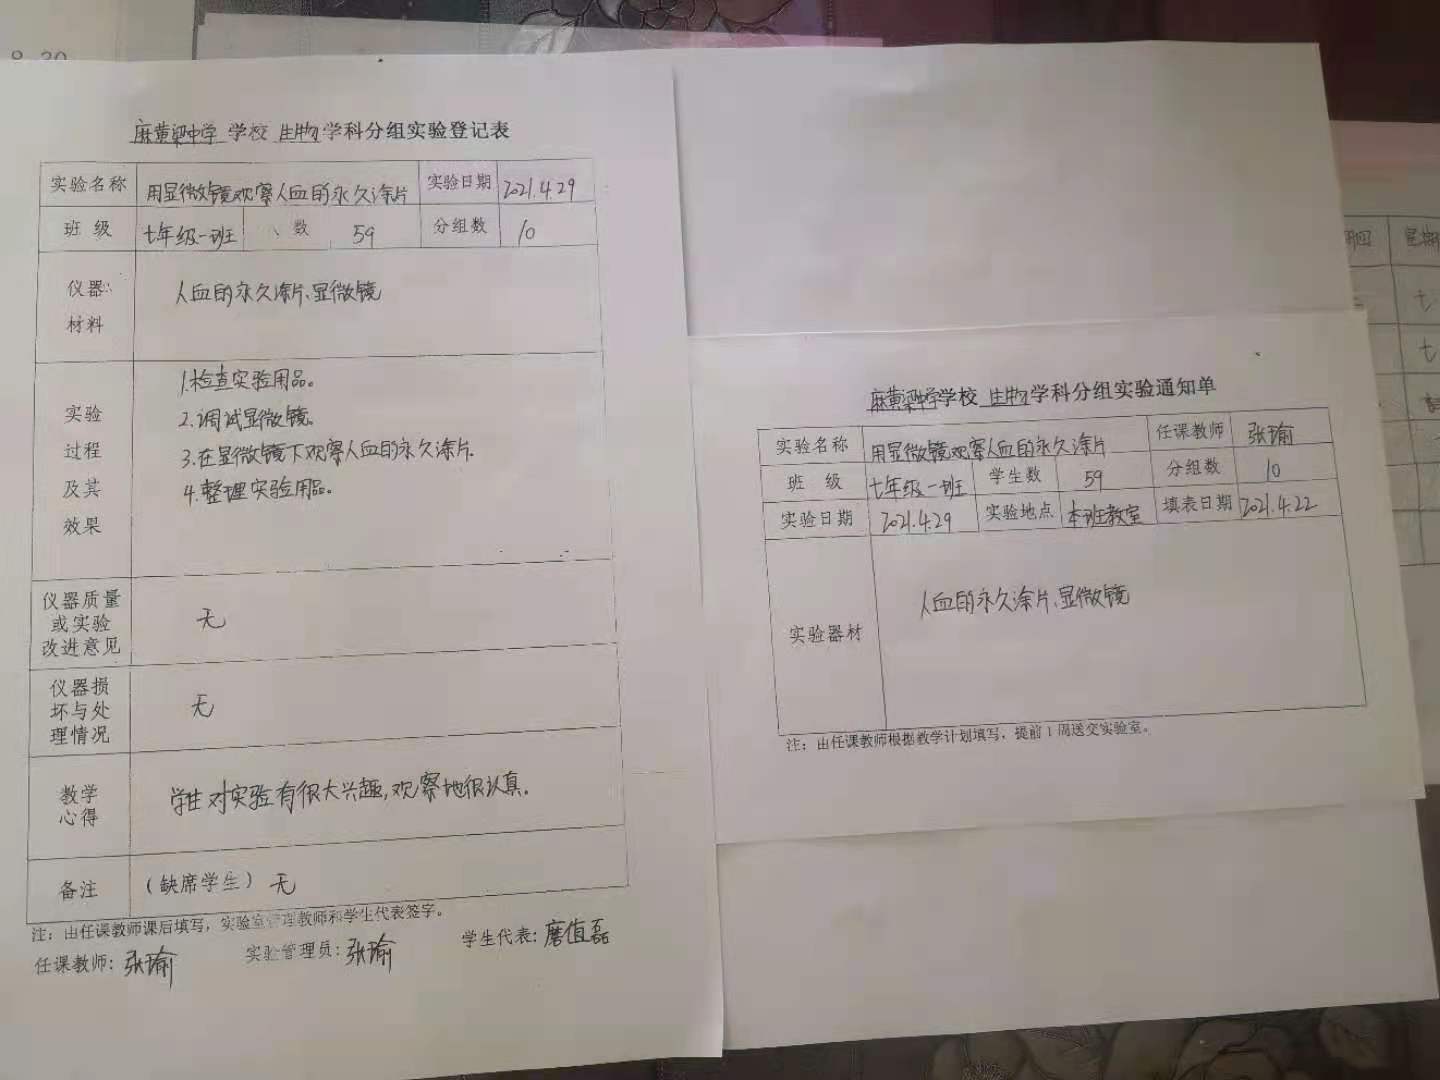 8.30
麻黄梁中学 学校 生物 学科分组实验登记表
实验名称 用显微镜观察人血的永久涂片 实验日期 2021.4.29
班级 七年级一班 数 59 分组数 10
仪器
材料
人血的永久涂片、显微镜
实验
过程
及其
效果
1.检查实验用品。
2.调试显微镜。
3.在显微镜下观察人血的永久涂片.
4.整理实验用品。
仪器质量
或实验
改进意见
无
仪器损
坏与处
理情况
无
教学
心得
学生对实验有很大兴趣,观察地很认真.
备注 (缺席学生) 无
注：由任课教师课后填写，实验室管理教师和学生代表签字。
任课教师: 张瑜 实验管理员: 张瑜 学生代表: 磊
麻黄梁中学学校 生物 学科分组实验通知单
实验名称 用显微镜观察人血的永久涂片 任课教师 张瑜
班级 七年级一班 学生数 59 分组数 10
实验日期 2021.4.29 实验地点 本班教室 填表日期 2021.4.22
实验器材 人血的永久涂片、显微镜
注：由任课教师根据教学计划填写，提前1周送交实验室。